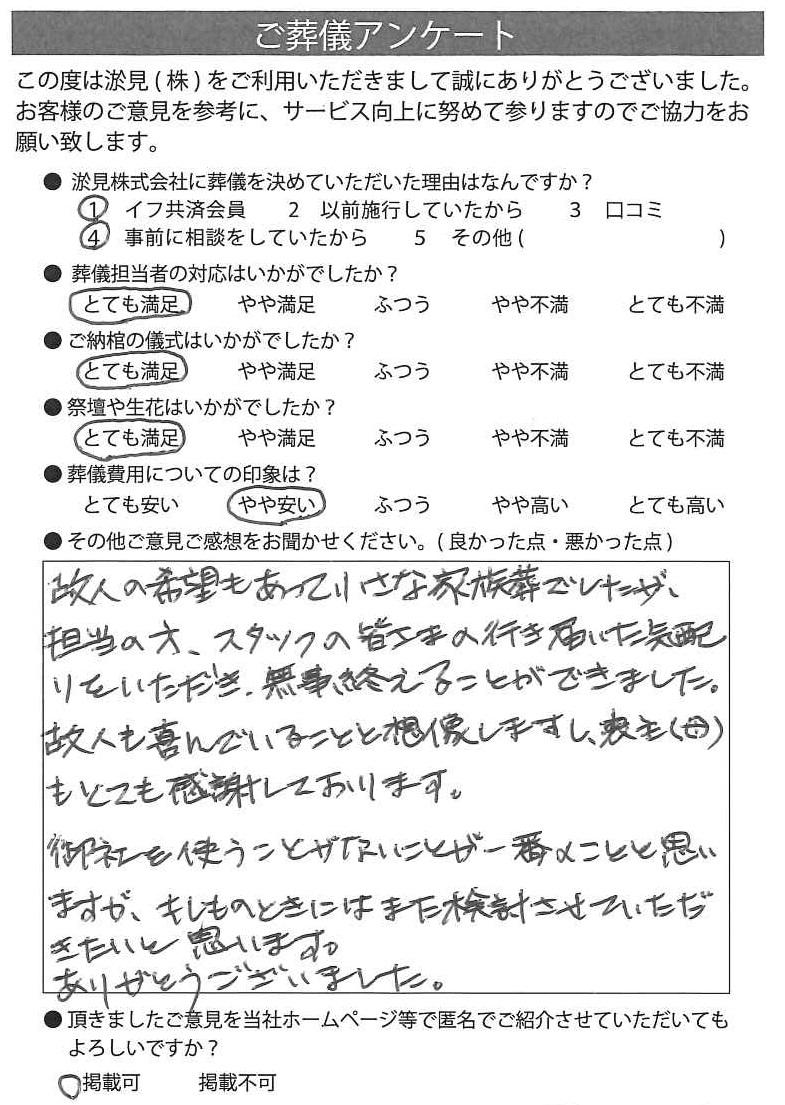 ご葬儀アンケート
この度は淤見(株)をご利用いただきまして誠にありがとうございました。
お客様のご意見を参考に、サービス向上に努めて参りますのでご協力をお
願い致します。
● 淤見株式会社に葬儀を決めていただいた理由はなんですか？
1 イフ共済会員 2 以前施行していたから 3 口コミ
4 事前に相談をしていたから 5 その他( )
● 葬儀担当者の対応はいかがでしたか？
とても満足 やや満足 ふつう やや不満 とても不満
● ご納棺の儀式はいかがでしたか？
とても満足 やや満足 ふつう やや不満 とても不満
● 祭壇や生花はいかがでしたか？
とても満足 やや満足 ふつう やや不満 とても不満
● 葬儀費用についての印象は？
とても安い やや安い ふつう やや高い とても高い
● その他ご意見ご感想をお聞かせください。(良かった点・悪かった点)
故人の希望もあって小さな家族葬でしたが、
担当の方、スタッフの皆さまの行き届いた気配
りをいただき、無事終えることができました。
故人も喜んでいることと想像しますし、喪主(母)
もとても感謝しております。
御社を使うことがないことが一番のことと思い
ますが、もしものときにはまた検討させていただ
きたいと思います。
ありがとうございました。
● 頂きましたご意見を当社ホームページ等で匿名でご紹介させていただいても
よろしいですか？
掲載可 掲載不可